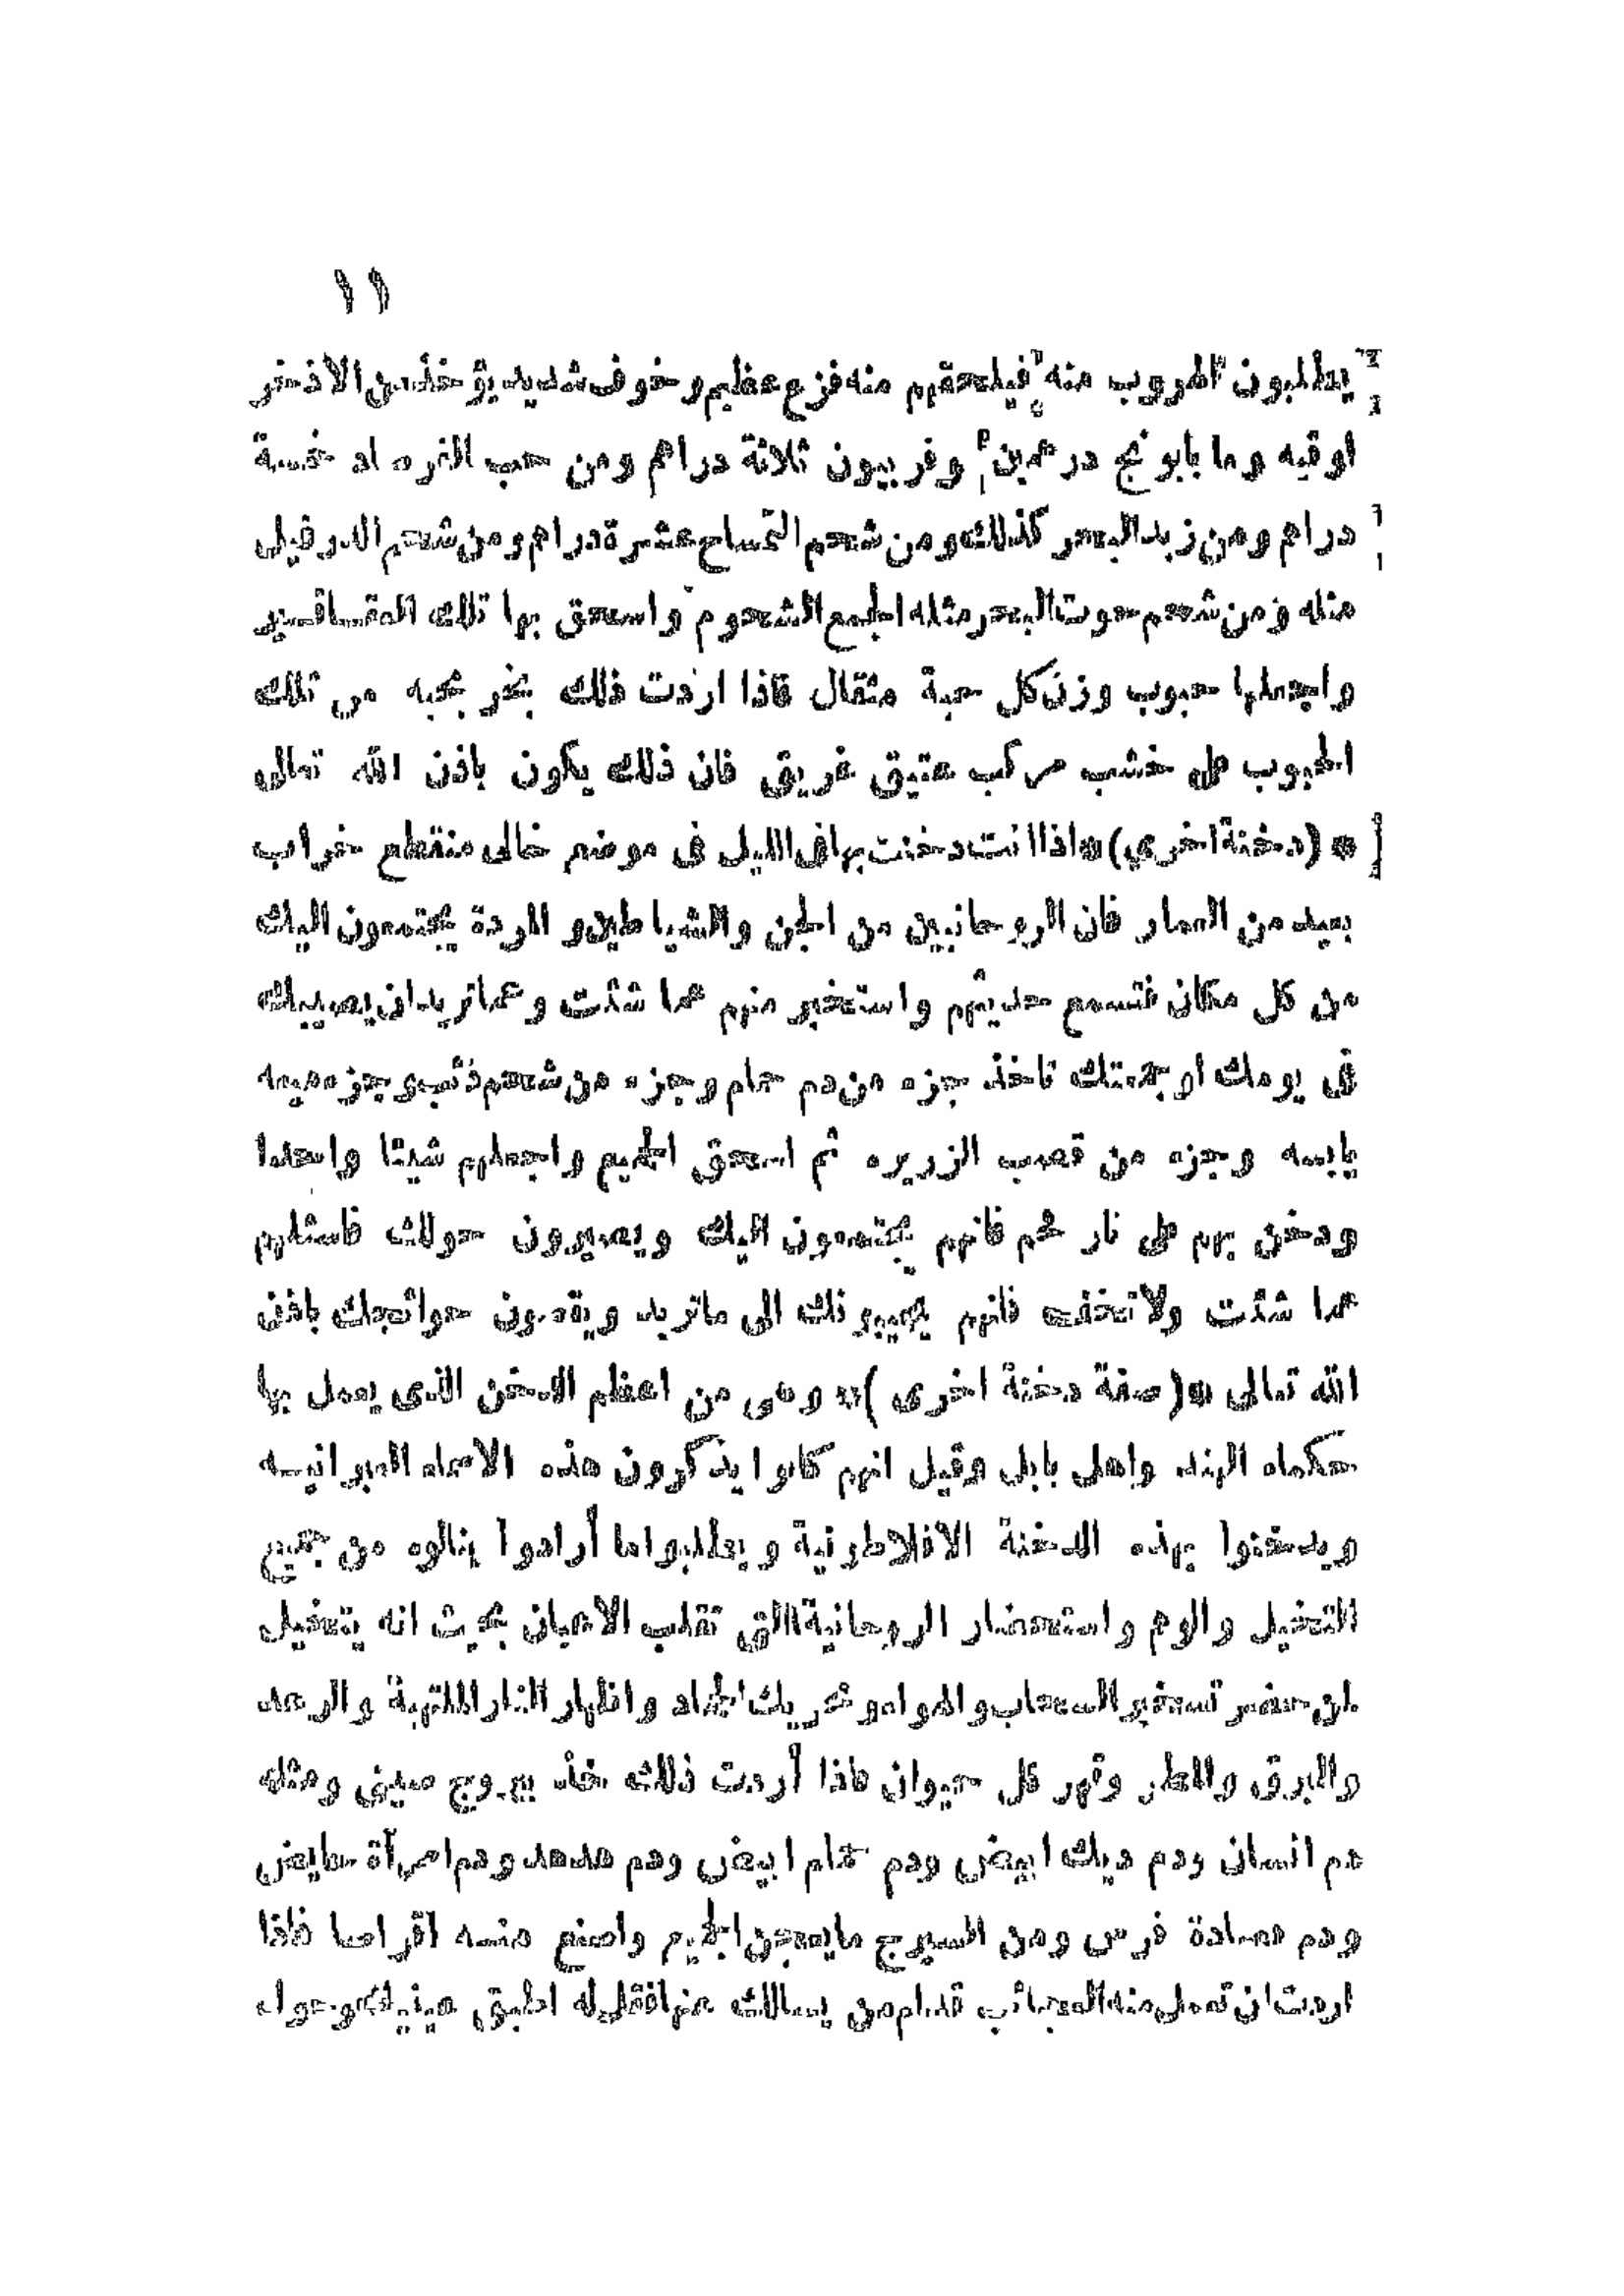 ١١
يطلبون الهروب منه فيلحقهم منه فزع عظيم وخوف شديد يؤخذ من الاذخر
اوقيه وما بابونج درهمين وفربيون ثلاثة دراهم ومن حب خمسة
دراهم ومن زبد البحر كذلك ومن شحم التمساح عشرة دراهم ومن شحم الدرفيل
مثله ومن شحم حوت البحر مثله اجمع الشحوم واسحق بها تلك العقاقير
واجعلها حبوب وزن كل حبة مثقال فاذا اردت ذلك بخر بحبه من تلك
الحبوب على خشب مركب عتيق غريق فان ذلك يكون باذن الله تعالى
* (دخنة اخري) * اذا انت دخنت بها فى الليل فى موضع خالى منقطع خراب
بعيد من العمار فان الروحانيين من الجن والشياطين والمردة يجتمعون اليك
من كل مكان فتسمع حديثهم واستخبر منهم عما شئت وعما تريد ان يصيبك
فى يومك او جمعتك تاخذ جزء من دم حمام وجزء من شحم ذئب وجزء ميعه
يابسه وجزء من قصب الزريره ثم اسحق الجميع واجعلهم شيئا واحدا
ودخن بهم على نار فحم فانهم يجتمعون اليك ويصيرون حولك فاسئلهم
عما شئت ولا تخف فانهم يجيبونك الى ما تريد ويقضون حوائجك باذن
الله تعالى * (صفة دخنة اخرى) * وهى من اعظم الدخن الذى يعمل بها
حكماء الهند واهل بابل وقيل انهم كانوا يذكرون هذه الاسماء العبرانيه
ويدخنوا بهذه الدخنة الافلاطونية ويطلبوا ما أرادوا ينالوه من جميع
التخيل والوهم واستحضار الروحانية التى تقلب الاعيان بحيث انه يتخيل
لمن حضر تسخير السحاب والهواء وتحريك الجماد واظهار النار الملتهبة والرعد
والبرق والمطر وقهر كل حيوان فاذا أردت ذلك خذ صينى ومثله
دم انسان ودم ديك ابيض ودم حمام ابيض ودم هدهد ودم امرآة حايض
ودم فصادة فرس ومن السيرج ما يعجن الجميع واصنع منه اقراصا فاذا
اردت ان تعمل منه العجائب قدام من يسالك عنها فقل له اطبق عينيك وحوله